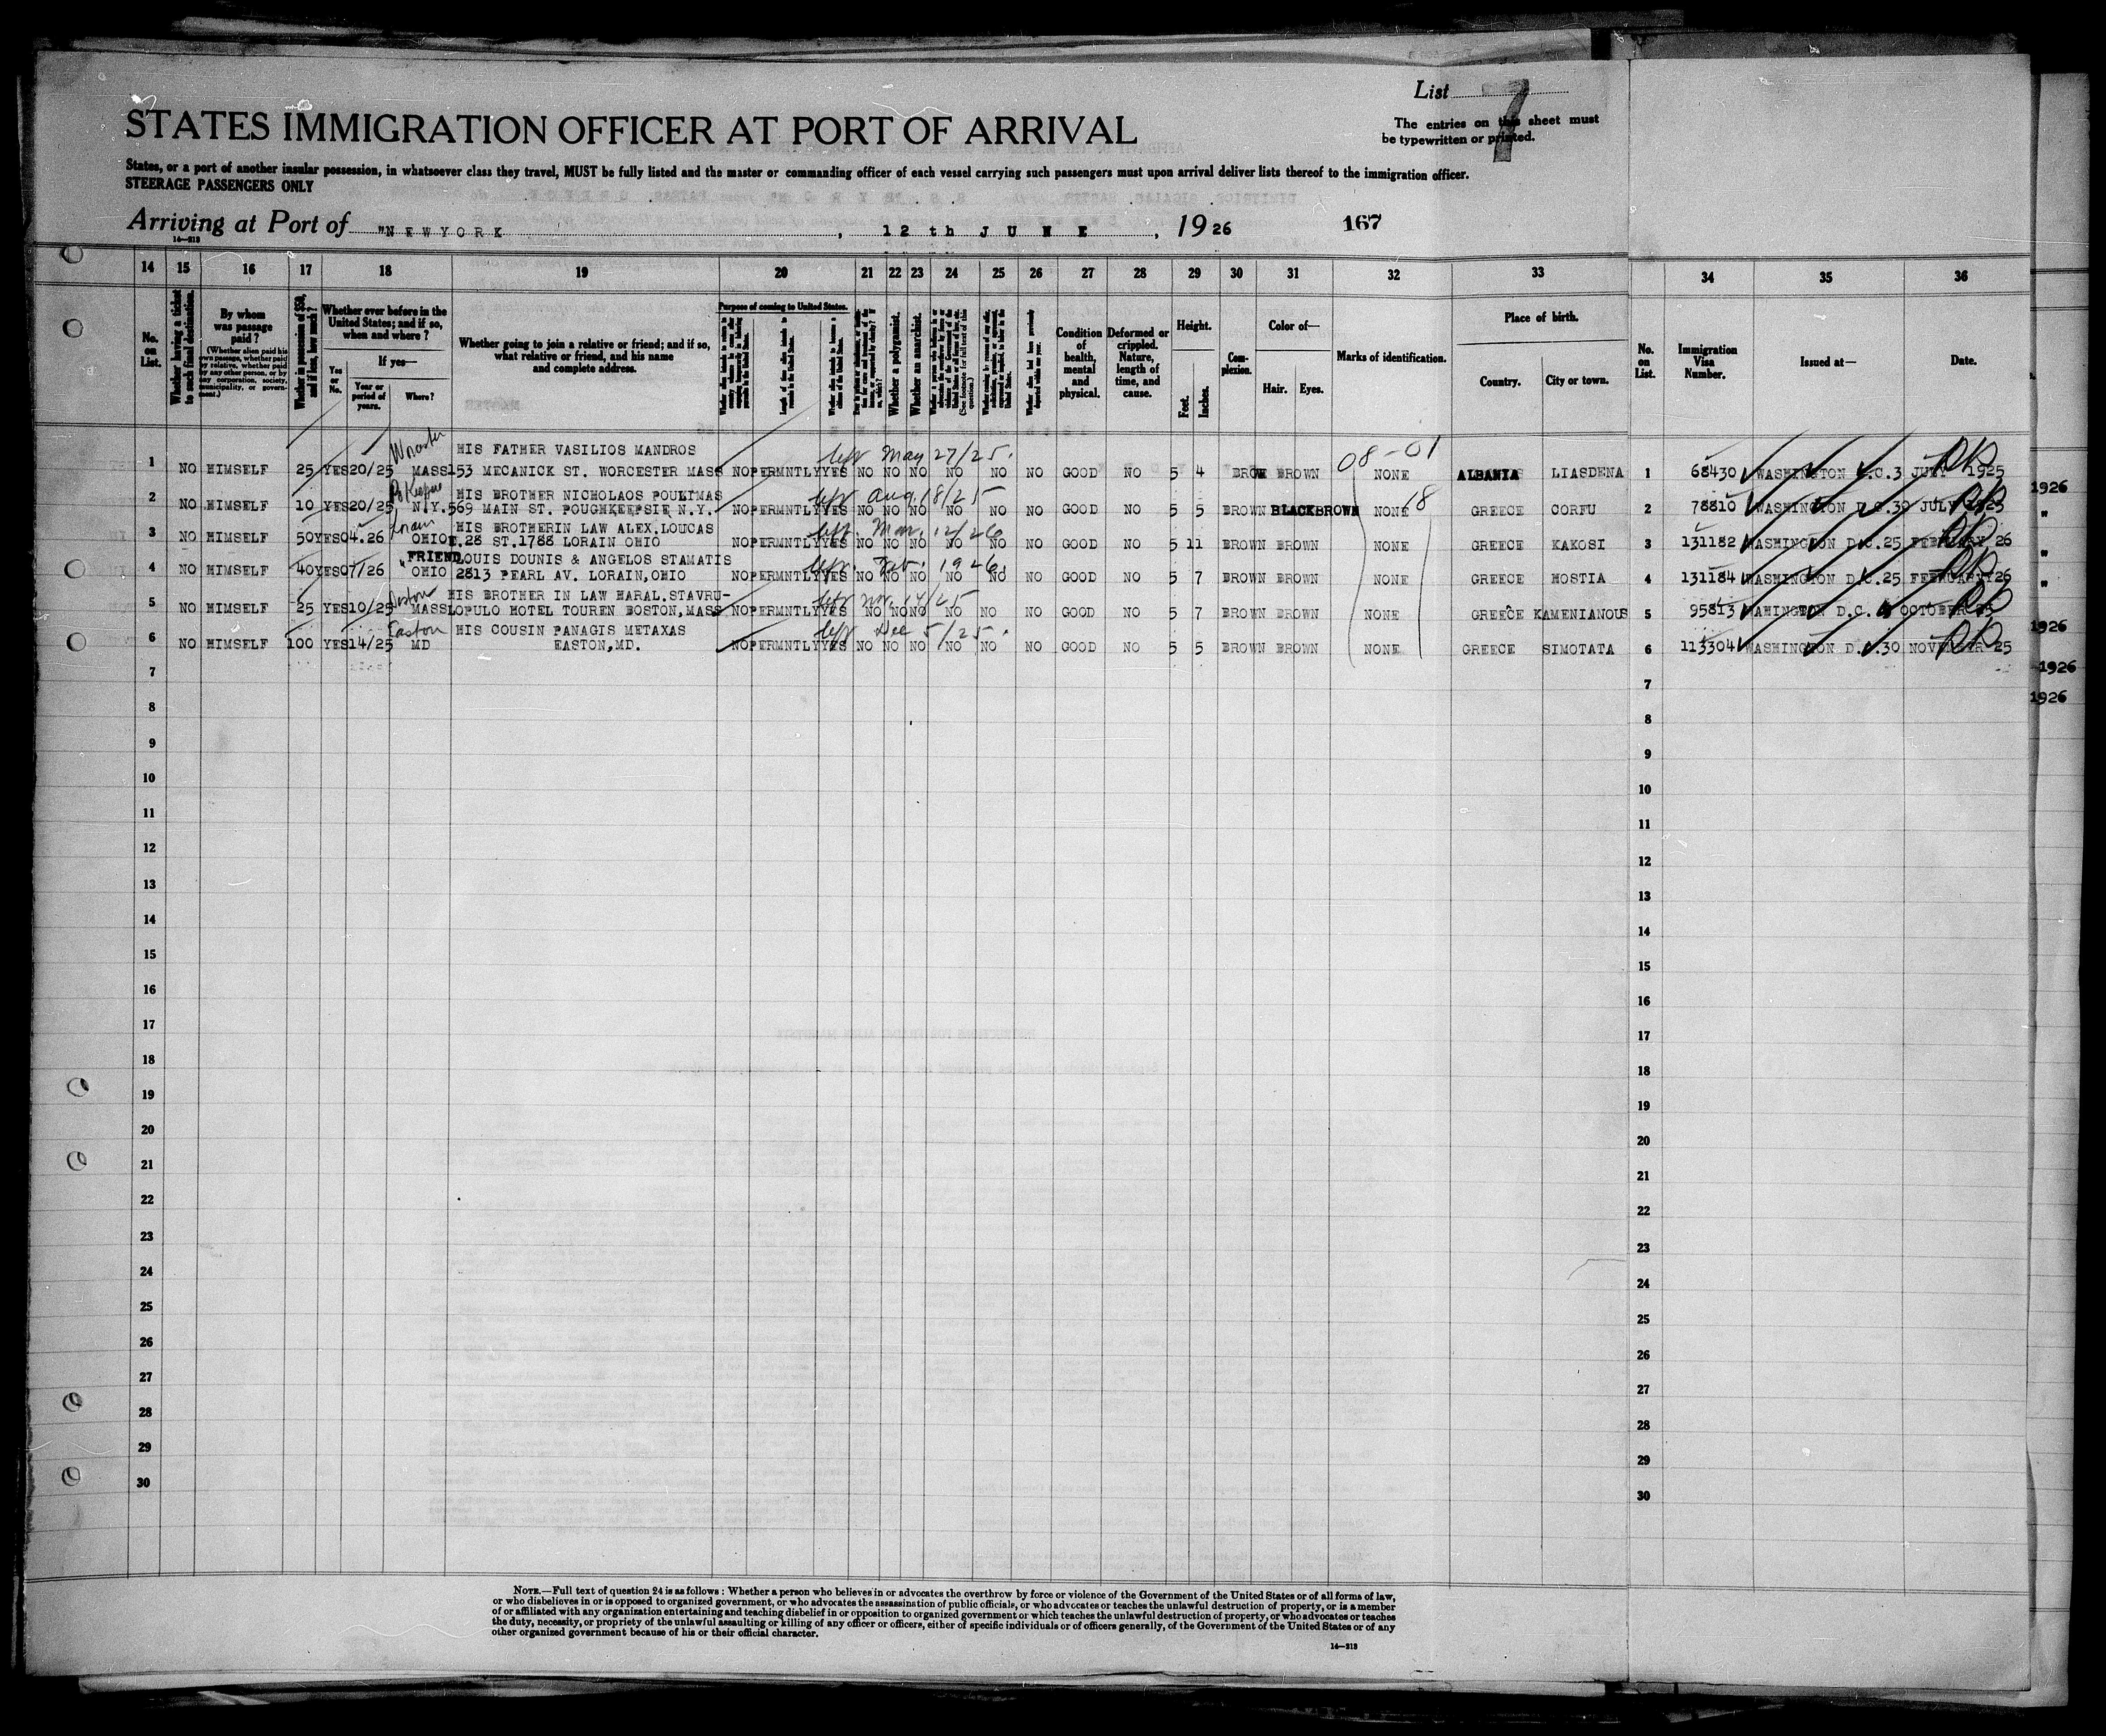 List 7
The entries on this sheet must
be typewritten or printed.
STATES IMMIGRATION OFFICER AT PORT OF ARRIVAL
States, or a port of another insular possession, in whatsoever class they travel, MUST be fully listed and the master or commanding officer of each vessel carrying such passengers must upon arrival deliver lists thereof to the immigration officer.
STEERAGE PASSENGERS ONLY
Arriving at Port of "NEWYORK , 12 th JUNE , 1926 167
14—213
14 15 16 17 18 19 20 21 22 23 24 25 26 27 28 29 30 31 32 33 34 35 36
No. on List.
Whether having a ticket to such final destination.
By whom was passage paid?
(Whether alien paid his own passage, whether paid by relative, whether paid by any other person, or by any corporation, society, municipality, or government.)
Whether in possession of $50, and if less, how much?
Whether ever before in the United States; and if so, when and where?
If yes—
Yes or No.
Year or period of years.
Where?
Whether going to join a relative or friend; and if so, what relative or friend, and his name and complete address.
Purpose of coming to United States.
Length of time alien intends to remain in the United States.
Whether a polygamist.
Whether an anarchist.
Condition of health, mental and physical.
Deformed or crippled. Nature, length of time, and cause.
Height.
Feet.
Inches.
Complexion.
Color of—
Hair. Eyes.
Marks of identification.
Place of birth.
Country. City or town.
No. on List.
Immigration Visa Number.
Issued at—
Date.
Worcester HIS FATHER VASILIOS MANDROS left May 27/25. 08-01
1 NO HIMSELF 25 YES 20/25 MASS 153 MECANICK ST. WORCESTER MASS NO PERMNTLY YES NO NO NO NO NO NO GOOD NO 5 4 BROWN BROWN NONE ALBANIA LIASDENA 1 68430 WASHINGTON D.C. 3 JULY 1925
HIS BROTHER NICHOLAOS POULIMAS left Aug. 18/25
2 NO HIMSELF 10 YES 20/25 N.Y. 569 MAIN ST. POUGHKEEPSIE N.Y. NO PERMNTLY YES NO NO NO NO NO NO GOOD NO 5 5 BROWN BLACK BROWN NONE GREECE CORFU 2 78810 WASHINGTON D.C. 30 JULY 1925
Lorain HIS BROTHERIN LAW ALEX.LOUCAS left Mar. 12/26
3 NO HIMSELF 50 YES 04.26 OHIO E.28 ST.1788 LORAIN OHIO NO PERMNTLY YES NO NO NO NO NO NO GOOD NO 5 11 BROWN BROWN NONE GREECE KAKOSI 3 131182 WASHINGTON D.C. 25 FEBRUARY 26
" FRIEND LOUIS DOUNIS & ANGELOS STAMATIS left. Feb. 1926.
4 NO HIMSELF 40 YES 07/26 OHIO 2813 PEARL AV. LORAIN,OHIO NO PERMNTLY YES NO NO NO NO NO NO GOOD NO 5 7 BROWN BROWN NONE GREECE HOSTIA 4 131184 WASHINGTON D.C. 25 FEBRUARY 26
Boston HIS BROTHER IN LAW HARAL.STAVRU- left
5 NO HIMSELF 25 YES 10/25 MASS LOPULO HOTEL TOUREN BOSTON,MASS NO PERMNTLY YES NO NO NO NO NO NO GOOD NO 5 7 BROWN BROWN NONE GREECE KAMENIANOUS 5 95813 WAHINGTON D.C. OCTOBER 25
Easton HIS COUSIN PANAGIS METAXAS left Dec 5/25.
6 NO HIMSELF 100 YES 14/25 MD EASTON,MD. NO PERMNTLY YES NO NO NO NO NO NO GOOD NO 5 5 BROWN BROWN NONE GREECE SIMOTATA 6 113304 WASHINGTON D.C. 30 NOVEMBER 25
1926
"
"
"
1926
1926
1926
7 7
8 8
9 9
10 10
11 11
12 12
13 13
14 14
15 15
16 16
17 17
18 18
19 19
20 20
21 21
22 22
23 23
24 24
25 25
26 26
27 27
28 28
29 29
30 30
NOTE.—Full text of question 24 is as follows: Whether a person who believes in or advocates the overthrow by force or violence of the Government of the United States or of all forms of law,
or who disbelieves in or is opposed to organized government, or who advocates the assassination of public officials, or who advocates or teaches the unlawful destruction of property, or is a member
of or affiliated with any organization entertaining and teaching disbelief in or opposition to organized government or which teaches the unlawful destruction of property, or who advocates or teaches
the duty, necessity, or propriety of the unlawful assaulting or killing of any officer or officers, either of specific individuals or of officers generally, of the Government of the United States or of any
other organized government because of his or their official character.
14—213